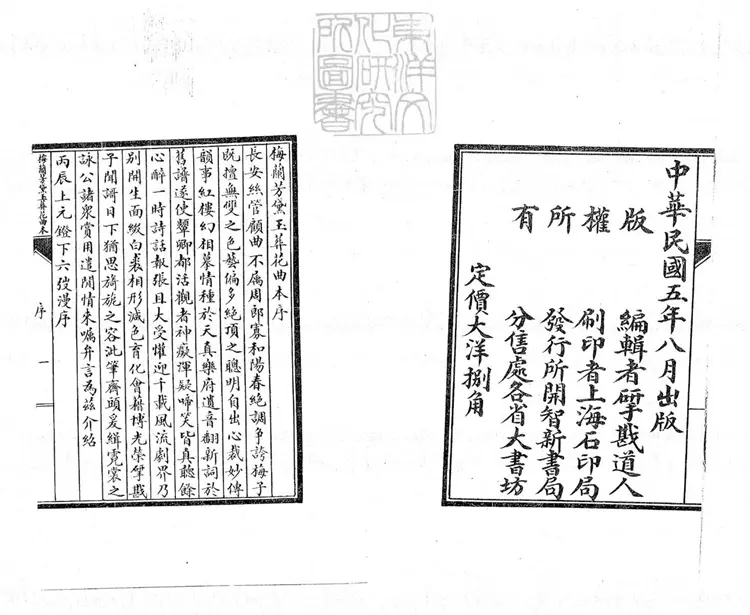 東洋文
化研究
所圖書
中華民國五年八月出版
版權所有
編輯者研戡道人
刷印者上海石印局
發行所開智新書局
分售處各省大書坊
定價大洋捌角
梅蘭芳黛玉葬花曲本序
長安絲管顧曲不屬周郎寡和陽春絕調爭誇梅子
既擅無雙之色藝偏多絕頂之聰明自出心裁妙傳
韻事紅樓幻相摹情種於天真樂府遺音翻新詞於
舊譜遂使顰卿都活觀者神癡渾疑啼笑皆真聽餘
心醉一時詩話報張且大受懽迎千載風流劇界乃
別開生面緞白裘相形減色育化會藉博光榮掌戡
子閒謌日下猶思旖旎之容沘筆齊頭爰緝霓裳之
詠公諸衆賞用遣閒情朱囑弁言為茲介紹
丙辰上元鐙下六弢漫序
梅蘭芳黛玉葬花曲本
序
一